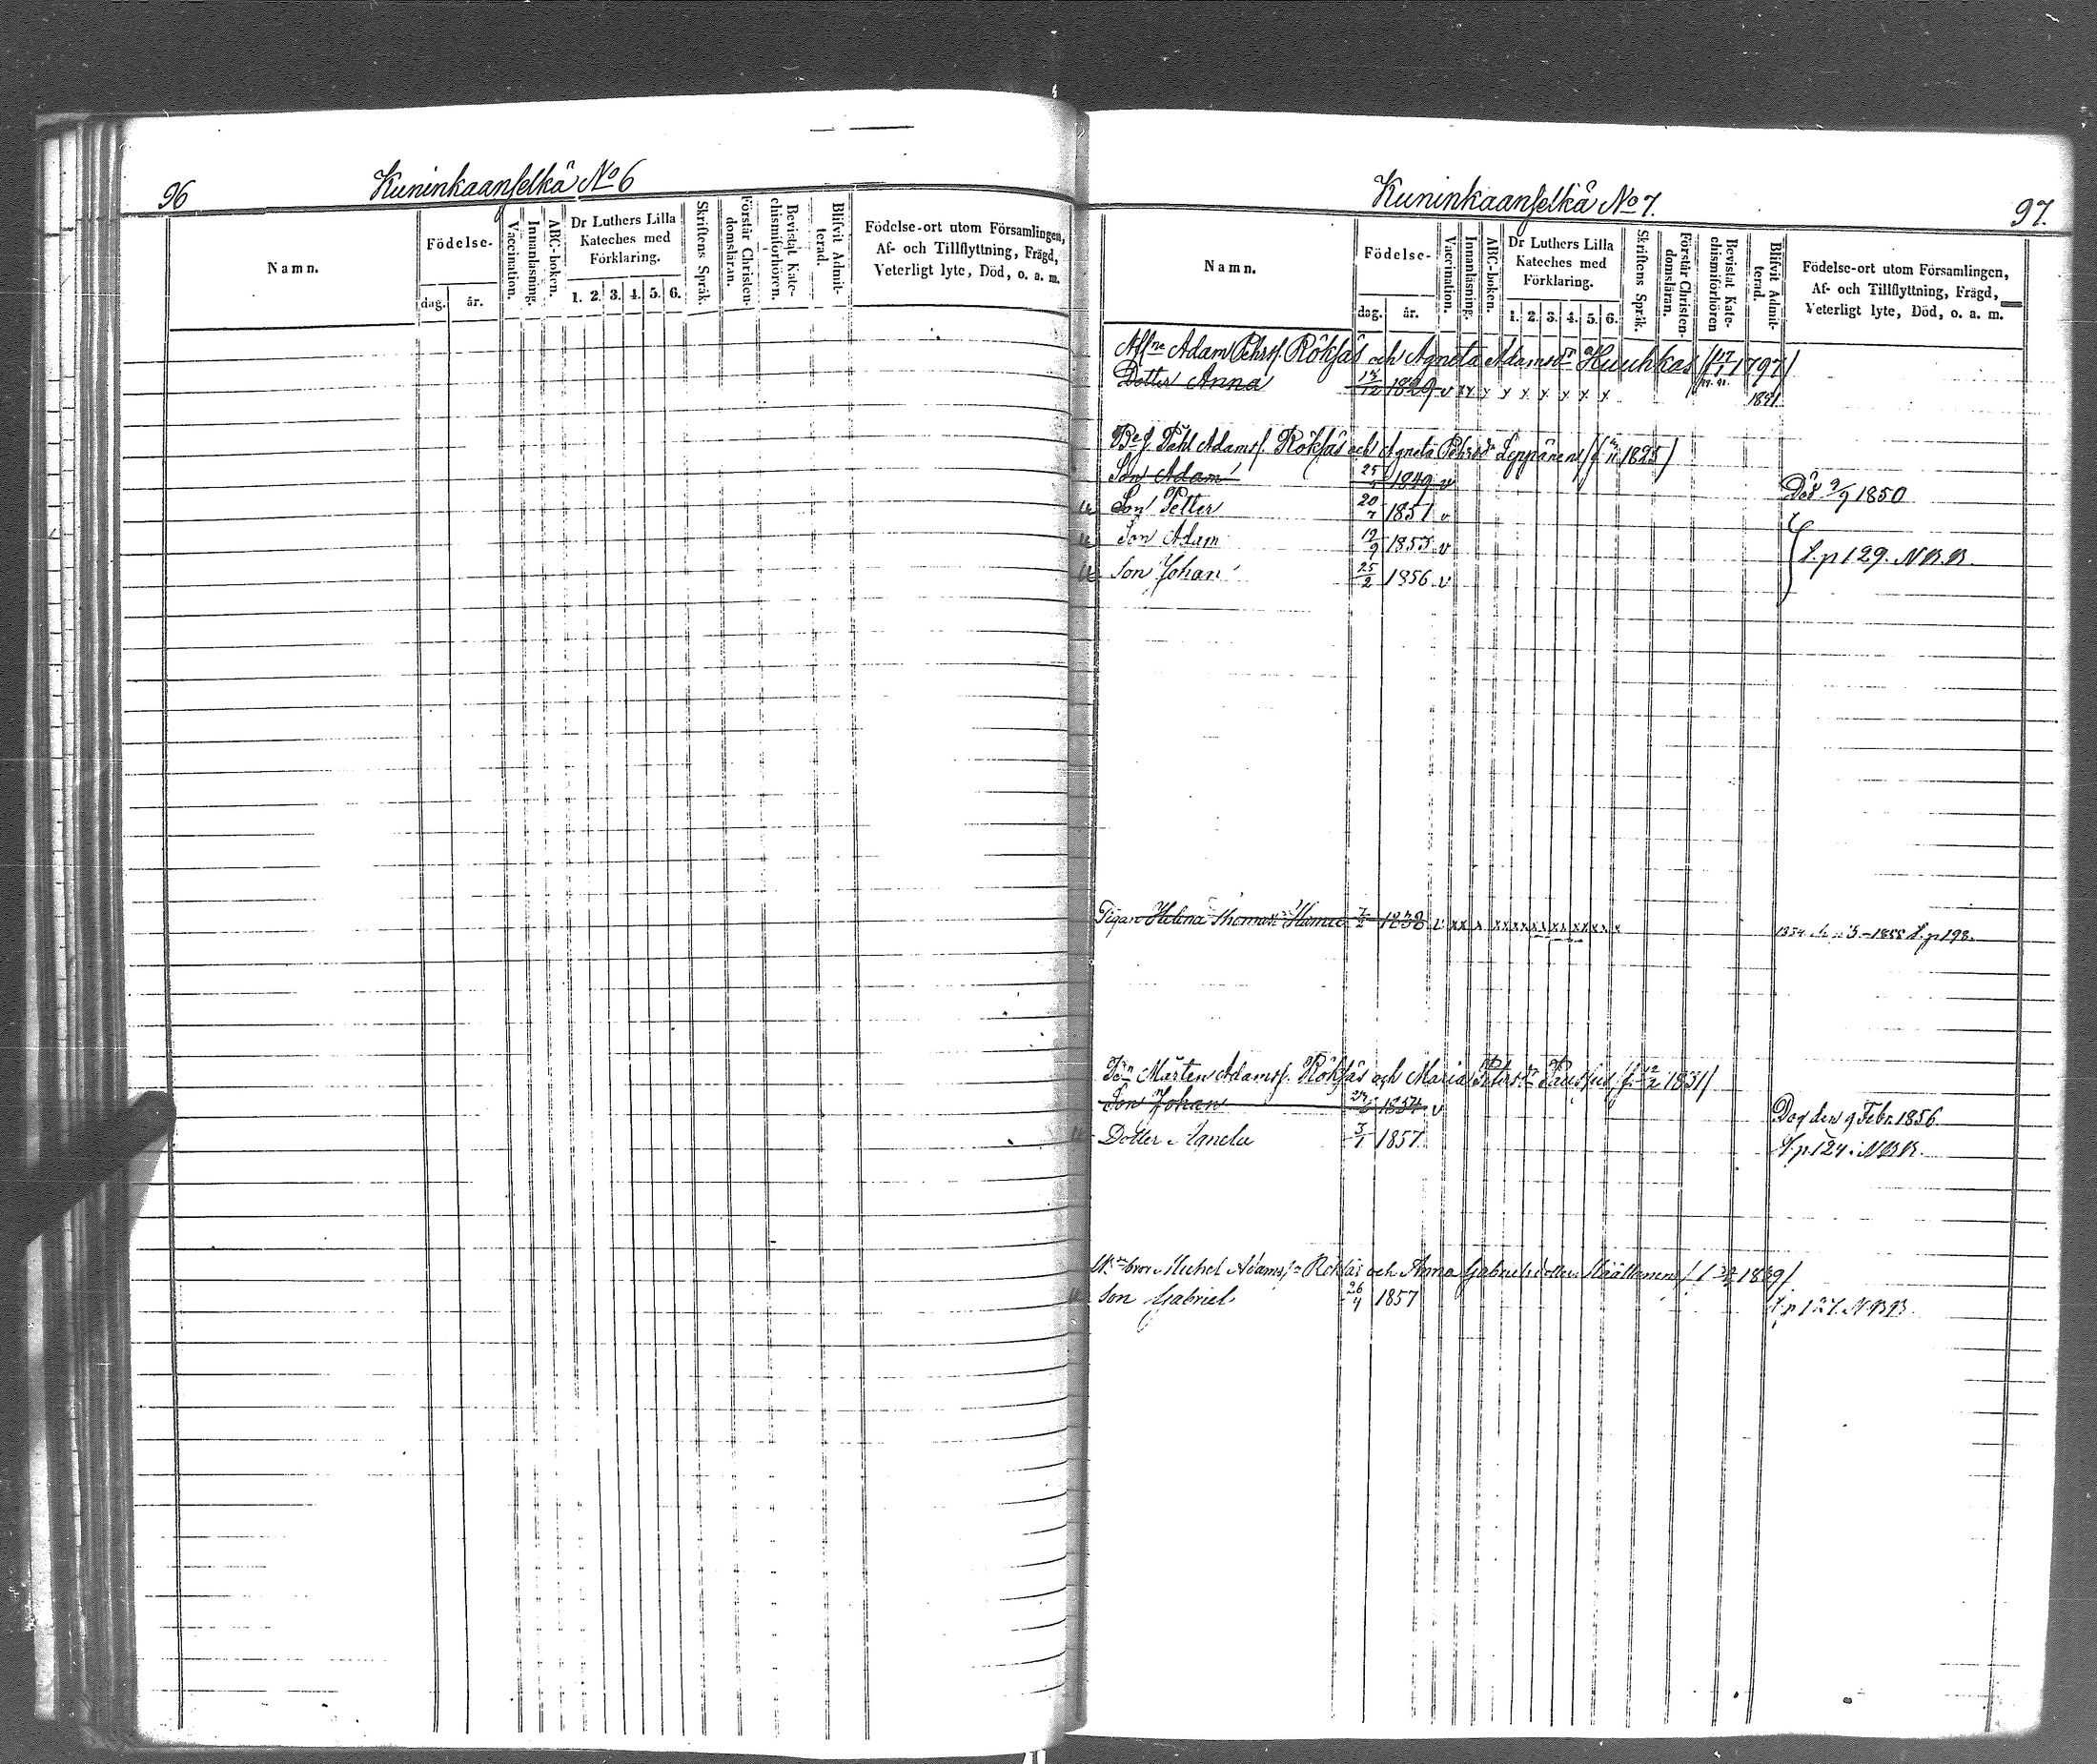 96
Kuninkaanselkä No 6
Namn.
Födelse-
dag.
år.
Vaccination.
Innanläsning.
ABC-boken.
Dr Luthers Lilla Kateches med Förklaring.
1. 2. 3. 4. 5. 6.
Skriftens Språk.
Förstår Christendomsläran.
Bevistat Katechismiförhören.
Blifvit Admitterad.
Födelse-ort utom Församlingen,
Af- och Tillflyttning, Frägd,
Veterligt lyte, Död, o. a. m.
Kuninkaanselkä No 7.
97.
Namn.
Födelse-
dag.
år.
Vaccination.
Innanläsning.
ABC-boken.
Dr Luthers Lilla
Kateches med
Förklaring.
1. 2. 3. 4. 5. 6.
Skriftens Språk.
Förstår Christen-
domsläran.
Bevistat Kate-
chismiförhören
Blifvit Admit-
terad.
Födelse-ort utom Församlingen,
Af- och Tillflyttning, Frägd,
Veterligt lyte, Död, o. a. m.
Adam Pehrss. Röksäs och Agneta Adamsdr Huuhkas 1797/
Dotter Anna 1829 v xx x x x x x x x
Pehl Adamss. Röksäs och Agneta Pehrsdr Leppänen 1825/
Son Adam 25 1849 v Död 9/9 1850
Son Petter 20/7 1851 v
Son Adam 12/9 1853 v S. p 129. N.B.B.
Son Johan 25/2 1856 v
Pigan Helena 1838 v xx x 1855 S. p 198.
Mårten Adamss. Röksäs och Maria 1831/
Son Johan 1854 v Dog den 9 Febr. 1856
Dotter Agneta 3/1 1857 S. p 124. N.B.B.
Michel Adamss. Röksäs och Anna Gabrielsdotter Määttänen
Son Gabriel 26/4 1857 S. p 127. N.B.B.